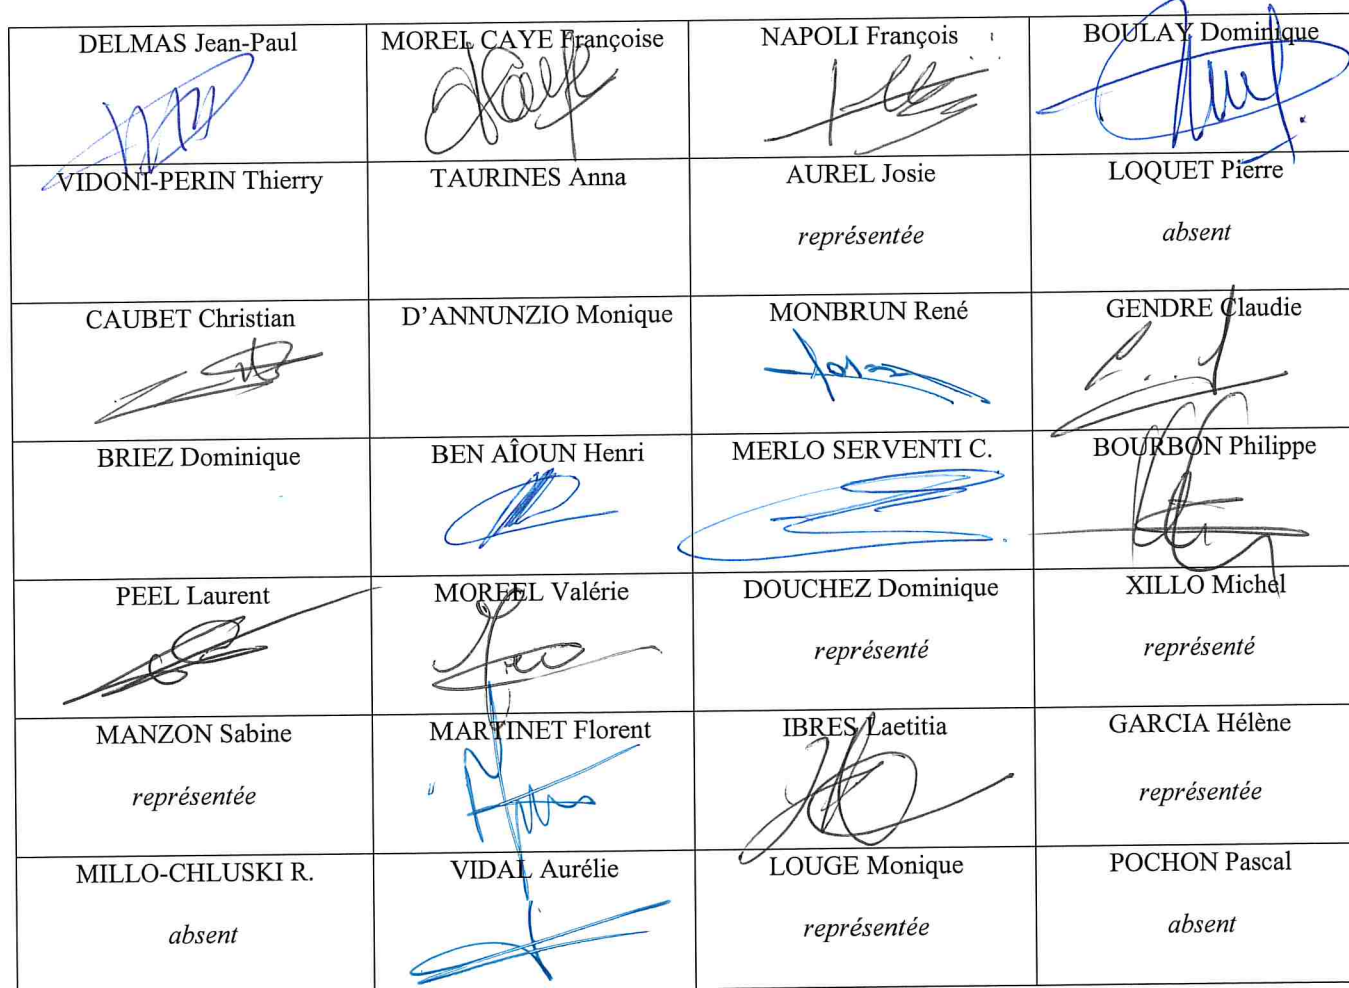 DELMAS Jean-Paul
MOREL CAYE Françoise
NAPOLI François
BOULAY Dominique
VIDONI-PERIN Thierry
TAURINES Anna
AUREL Josie
représentée
LOQUET Pierre
absent
CAUBET Christian
D'ANNUNZIO Monique
MONBRUN René
GENDRE Claudie
BRIEZ Dominique
BEN AÎOUN Henri
MERLO SERVENTI C.
BOURBON Philippe
PEEL Laurent
MOREEL Valérie
DOUCHEZ Dominique
représenté
XILLO Michel
représenté
MANZON Sabine
représentée
MARTINET Florent
IBRES Laetitia
GARCIA Hélène
représentée
MILLO-CHLUSKI R.
absent
VIDAL Aurélie
LOUGE Monique
représentée
POCHON Pascal
absent